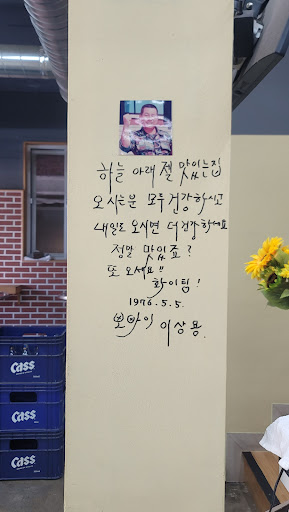 하늘 아래 젤 맛있는집
오시는분 모두 건강하시고
내일도 오시면 더 건강하세요
정말 맛있죠?
또 오세요!!
화이팅!
1976.5.5.
뽀빠이 이상용.
Cass
Cass
Cass